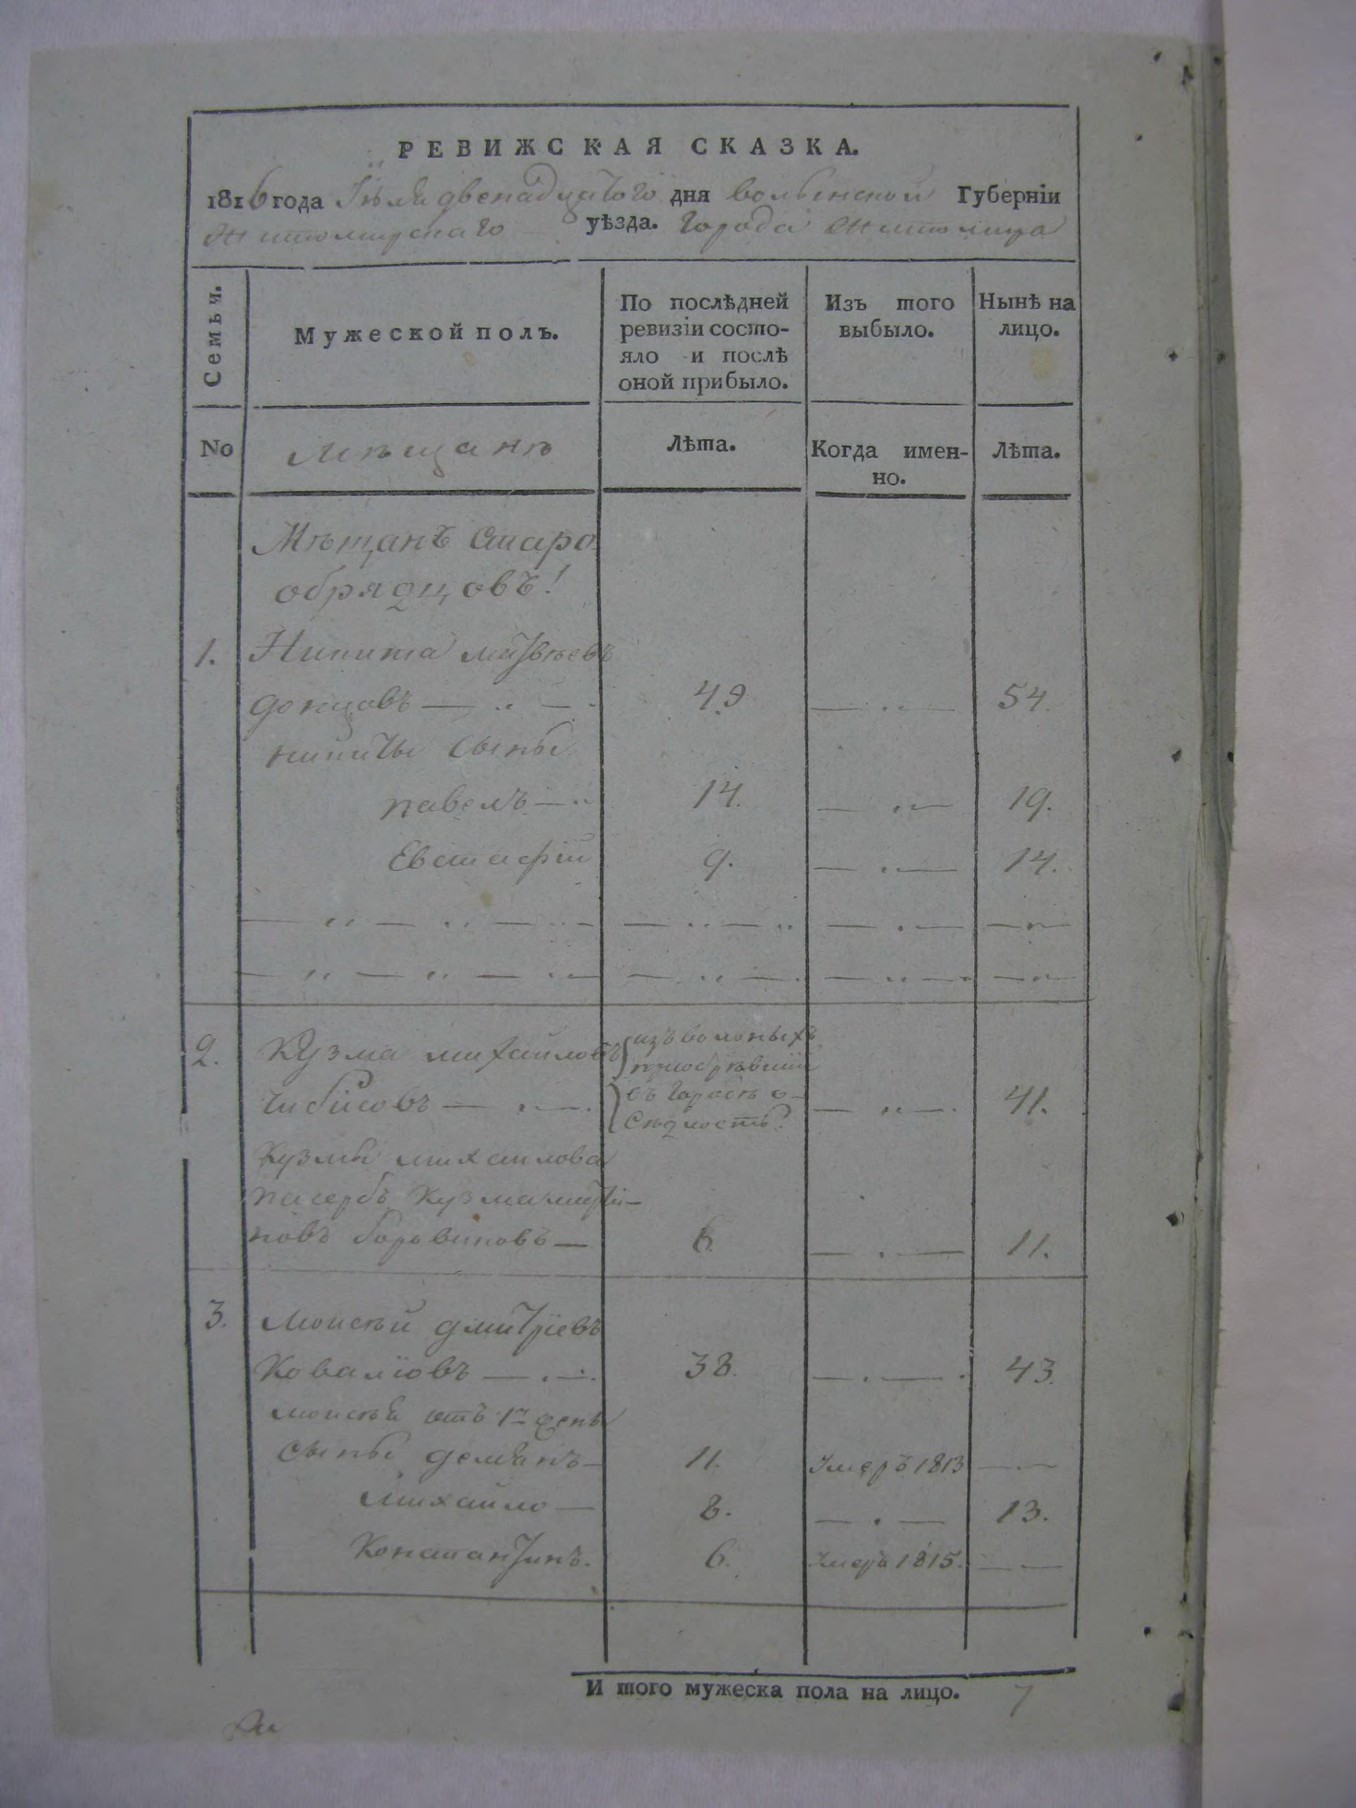 РЕВИЖСКАЯ СКАЗКА.
1816 года Іюля двенадцатого дня волынской Губерніи
Житомирскаго уѣзда. Города Житомира
Семьи.
Мужеской полъ.
По послѣдней
ревизіи состо-
яло и послѣ
оной прибыло.
Изъ того
выбыло.
Нынѣ на
лицо.
No
Мѣщанѣ
Лѣта.
Когда имен-
но.
Лѣта.
Мѣщанъ Старо
обрядцовъ!
1. Никита матвѣевъ
донцовъ — 49 — 54.
никиты сыны
павелъ — 14. — 19.
Евстафій 9. — 14.
2. Кузма михайловъ
Чибисовъ — 41.
изъ волоныхъ
приобрѣвший
въ Городѣ о-
сѣдлость
Кузмы михаилова
пасербъ Кузма
новъ боровиковъ — 6 — 11.
3. Моисѣй дмитріевъ
Ковалiовъ — 38. — 43.
моисѣя отъ 1й жены
сыны демянъ — 11. Умеръ 1813 —
михайло — 8. — 13.
Константинъ. 6. Умеръ 1815. —
И того мужеска пола на лицо. 7